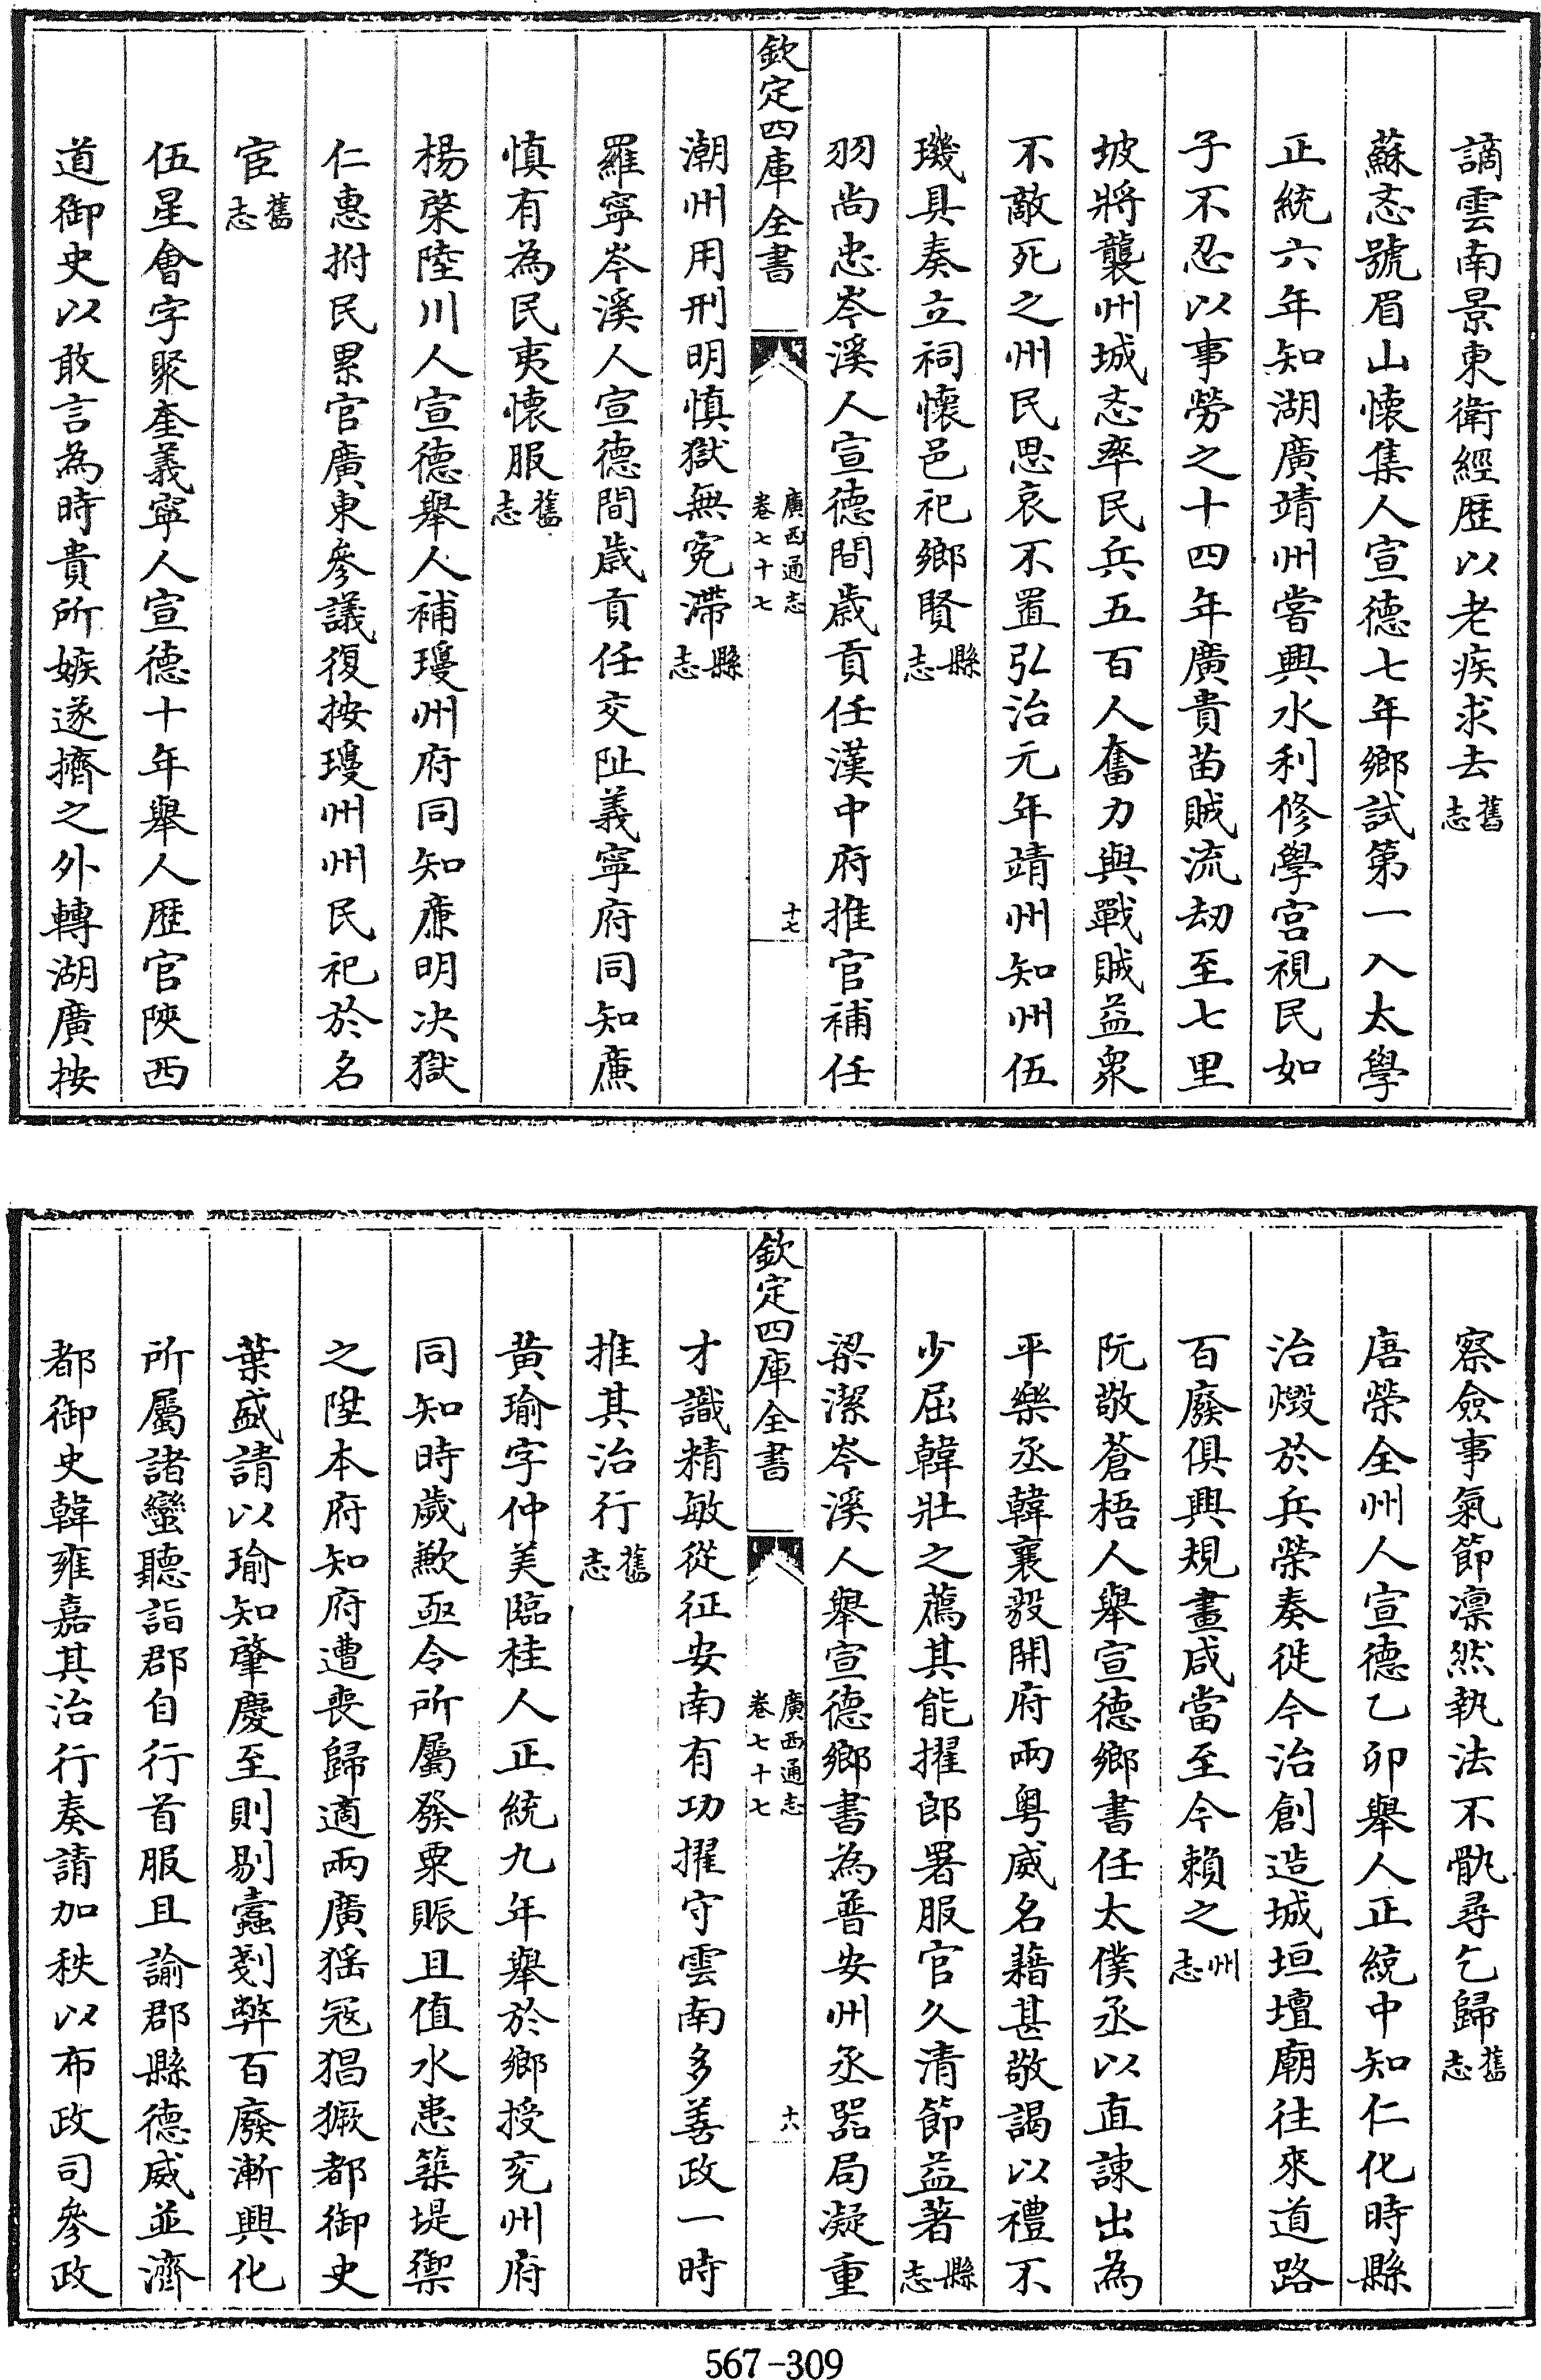 謫雲南景東衛經歴以老疾求去舊志
蘇忞號眉山懐集人宣德七年鄉試第一入太學
正統六年知湖廣靖州嘗興水利修學宮視民如
子不忍以事勞之十四年廣貴苗賊流刼至七里
坡將襲州城忞率民兵五百人奮力與戰賊益衆
不敵死之州民思哀不置弘治元年靖州知州伍
璣具奏立祠懐邑祀鄉賢縣志
羽尚忠岑溪人宣德間歲貢任漢中府推官補任
欽定四庫全書 廣西通志 卷七十七 十七
潮州用刑明慎獄無寃滯縣志
羅寧岑溪人宣德間歲貢任交阯義寧府同知亷
慎有為民夷懐服舊志
楊棨陸川人宣德舉人補瓊州府同知亷明决獄
仁惠拊民累官廣東參議復按瓊州州民祀於名
宦舊志
伍星會字聚奎義寧人宣德十年舉人歴官陜西
道御史以敢言為時貴所嫉遂擠之外轉湖廣按
察僉事氣節凛然執法不骫尋乞歸舊志
唐榮全州人宣德乙卯舉人正統中知仁化時縣
治燬於兵榮奏徙今治創造城垣壇廟往來道路
百廢俱興規畫咸當至今賴之州志
阮敬蒼梧人舉宣德鄉書任太僕丞以直諫出為
平樂丞韓襄毅開府兩粤威名藉甚敬謁以禮不
少屈韓壯之薦其能擢郎署服官久清節益著縣志
梁潔岑溪人舉宣德鄉書為普安州丞器局凝重
欽定四庫全書 廣西通志 卷七十七 十八
才識精敏從征安南有功擢守雲南多善政一時
推其治行舊志
黄瑜字仲美臨桂人正統九年舉於鄉授兖州府
同知時歲歉亟令所屬發粟賑且值水患築堤禦
之陞本府知府遭喪歸適兩廣猺冦猖獗都御史
葉盛請以瑜知肇慶至則剔蠧剗弊百廢漸興化
所屬諸蠻聽詣郡自行首服且諭郡縣德威並濟
都御史韓雍嘉其治行奏請加秩以布政司參政
567-309